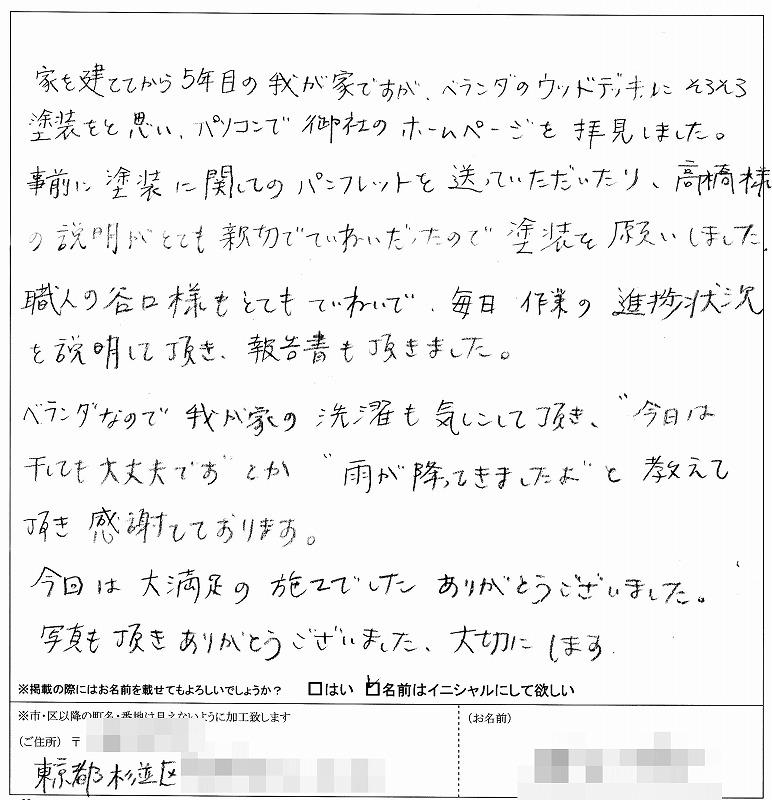 家を建ててから5年目の我が家ですが、ベランダのウッドデッキにそろそろ
塗装をと思い、パソコンで御社のホームページを拝見しました。
事前に塗装に関してのパンフレットを送っていただいたり、高橋様
の説明がとても親切でていねいだったので塗装を願いしました。
職人の谷口様もとてもていねいで、毎日作業の進捗状況
を説明して頂き、報告書も頂きました。
ベランダなので我が家の洗濯も気にして頂き、“今日は
干しても大丈夫です”とか“雨が降ってきましたよ”と教えて
頂き感謝しております。
今回は大満足の施工でした ありがとうございました。
写真も頂きありがとうございました、大切にします
※掲載の際にはお名前を載せてもよろしいでしょうか? □はい ☑名前はイニシャルにして欲しい
※市・区以降の町名・番地は見えないように加工致します
(ご住所) 〒
東京都杉並区
(お名前)